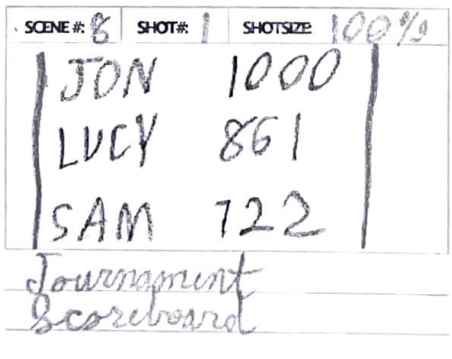 SCENE #: 8 SHOT#: 1 SHOTSIZE: 100%
JON 1000
LUCY 861
SAM 722
Tournament
Scoreboard